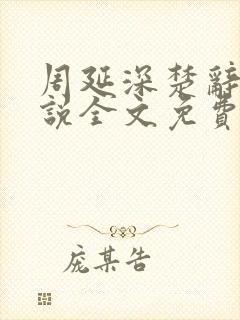 周延深楚辭
說全文免費
庞某告